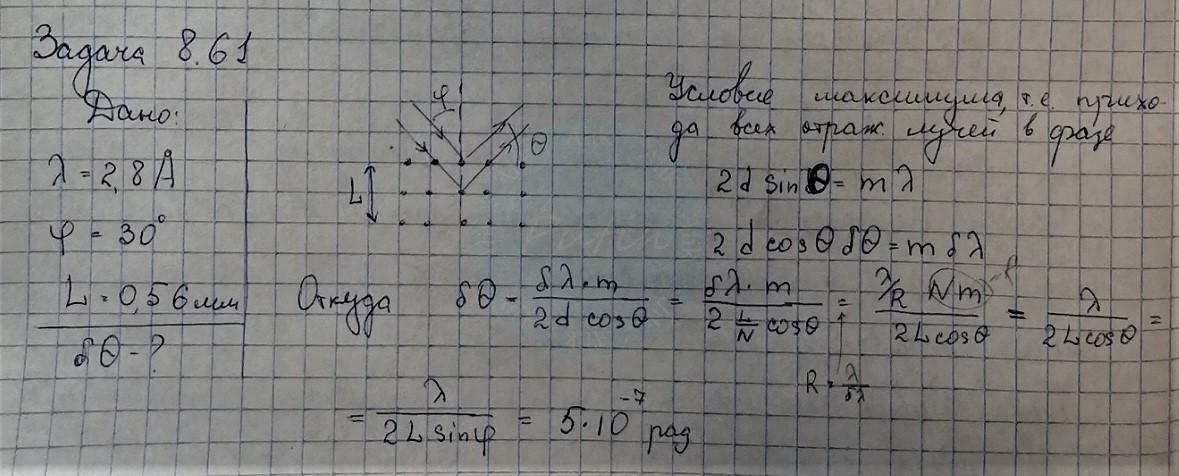 Задача 8.61
Дано:
λ = 2,8 Å
φ = 30°
L = 0,56 мм
δθ - ?
φ
θ
L
Условие максимума, т.е. прихо-
да всех отраж. лучей в фазе
2 d sin θ = m λ
2 d cos θ δθ = m δλ
Откуда δθ - δλ · m / 2d cosθ = δλ · m / 2 L/N cosθ = λ/R Nm / 2L cosθ = λ / 2L cosθ =
R = λ/δλ
= λ / 2L sinφ = 5·10⁻⁷ рад